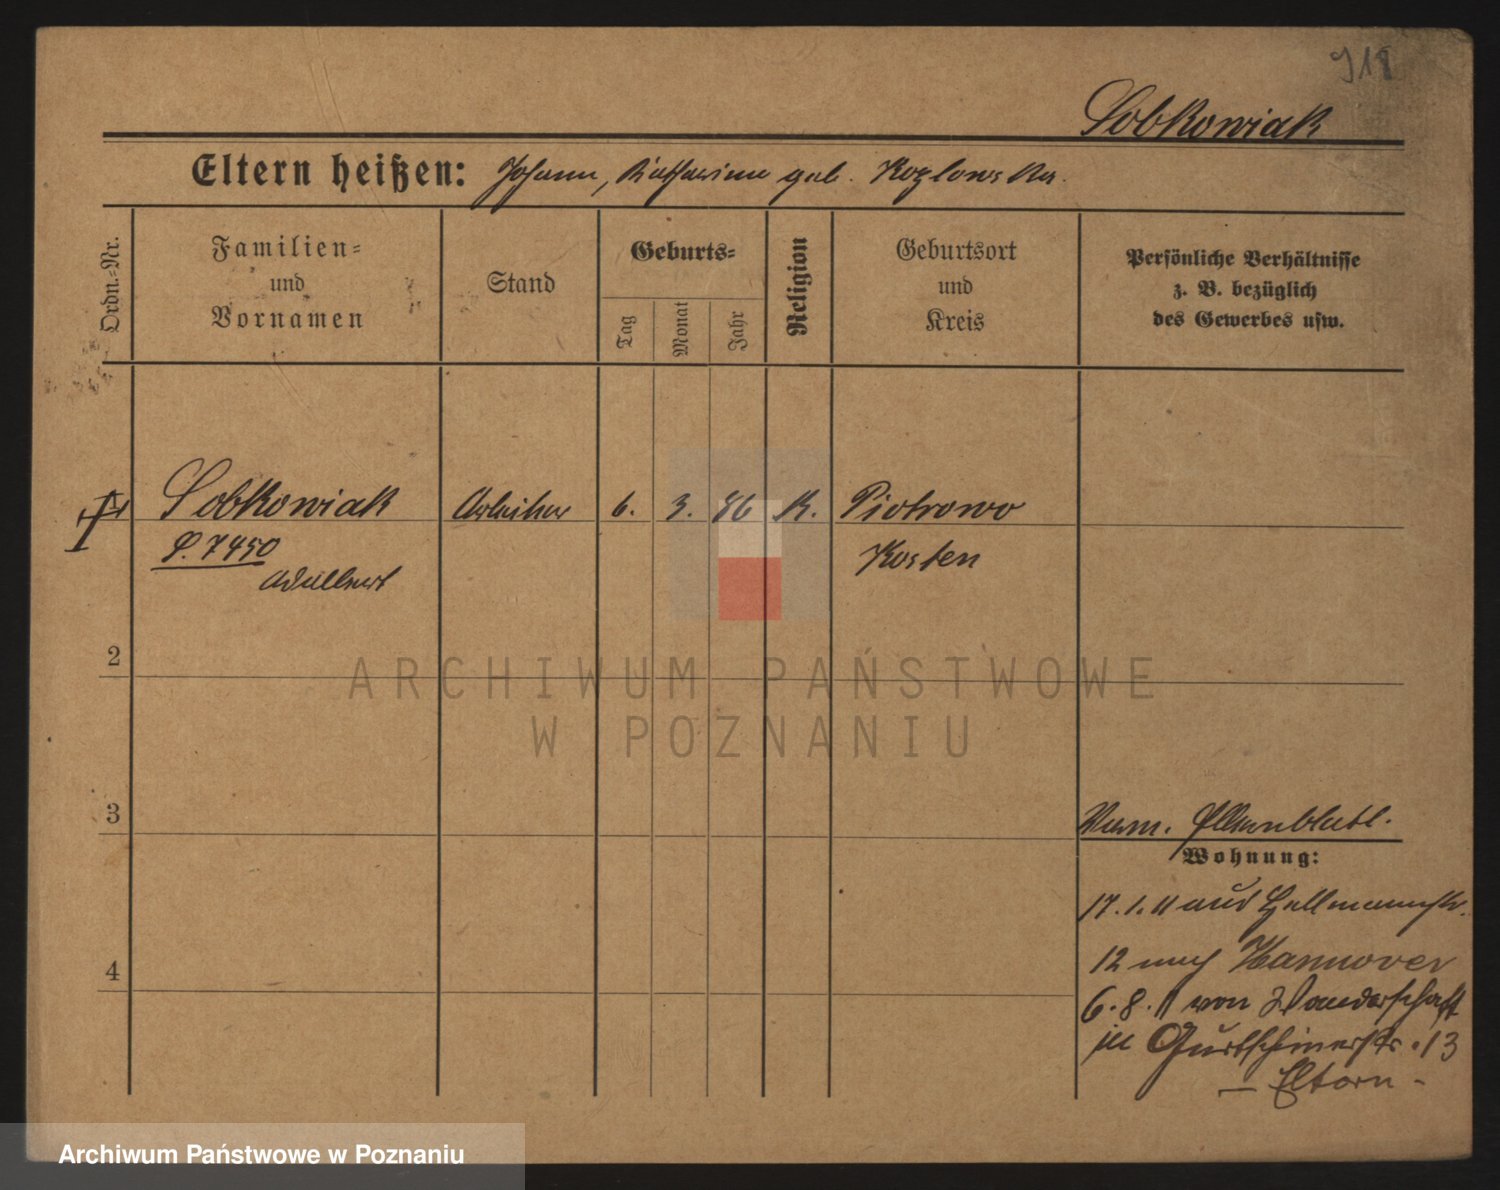 918
Sobkowiak
Eltern heißen: Johann, Katharina geb. Kozlowska.
Ordn.-Nr.
Familien-
und
Vornamen
Stand
Geburts-
Tag
Monat
Jahr
Religion
Geburtsort
und
Kreis
Persönliche Verhältnisse
z. B. bezüglich
des Gewerbes usw.
Sobkowiak Arbeiter 6. 3. 86 K. Piotrowo
P. 7450 Kosten
Adalbert
2
3
4
Elternblatt.
Wohnung:
17.1.11 aus
12 nach Hannover
6.8.11 von Wanderschaft
in Gurtschinerstr. 13
- Eltern -
ARCHIWUM PAŃSTWOWE
W POZNANIU
Archiwum Państwowe w Poznaniu